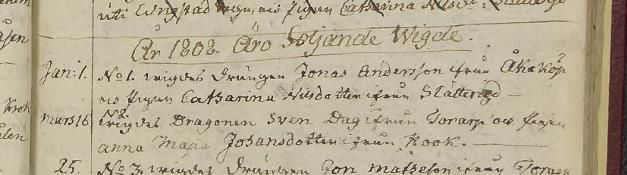 uti Ljungstad Sogn, och Pigan Catharina Nilsd:r i
År 1808. Äro Följande Wigde.
Jan: 1. No 1. wigdes Drängen Jonas Andersson ifrån Åkaköp
och Pigan Catharina Nilsdotter ifrån Slättaryd
Mars 16 No 2. wigdes Dragonen Sven Dag ifrån Torarp och Pigan
anna Maja Johansdotter ifrån Krok.
25. No 3. wigdes Drängen Jon Matheson ifrån